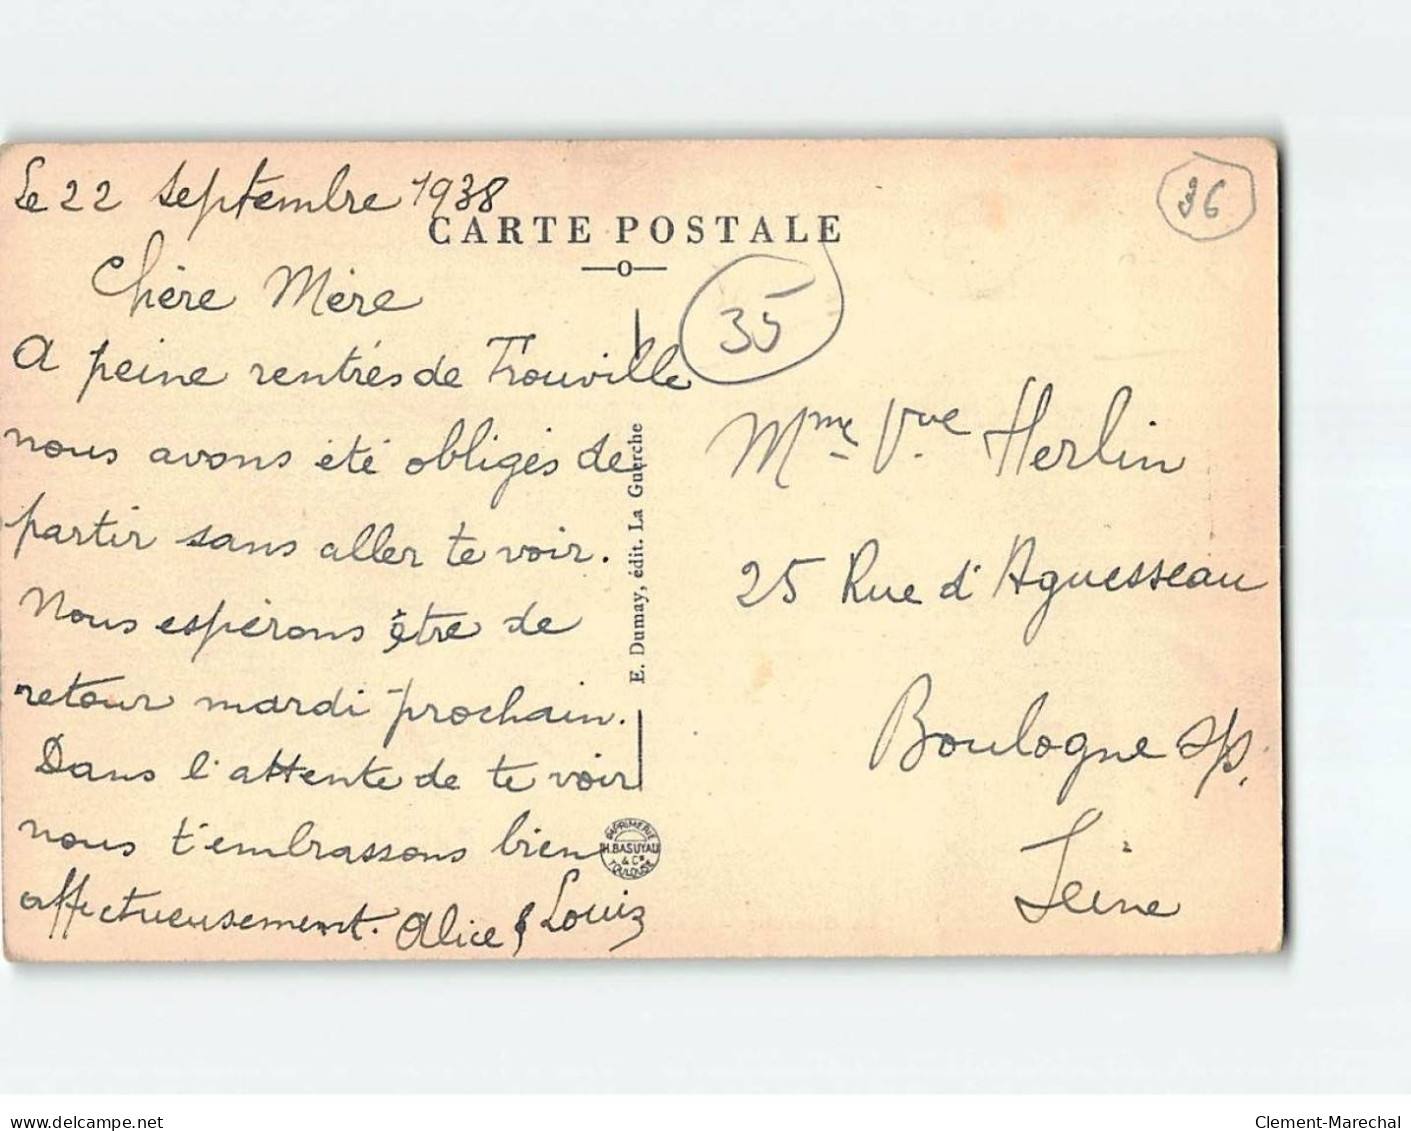 Le 22 septembre 1938
CARTE POSTALE
Chère Mère
A peine rentrés de Trouville
nous avons été obligés de
partir sans aller te voir.
Nous espérons être de
retour mardi prochain.
Dans l'attente de te voir
nous t'embrassons bien
affectueusement. Alice & Louis
E. Dumay, édit. La Guerche
IMPRIMERIE
H. BASUYAU
& Cie
TOULOUSE
36
35
Mme Vve Herlin
25 Rue d'Aguesseau
Boulogne s/s.
Seine
www.delcampe.net
Clement-Marechal